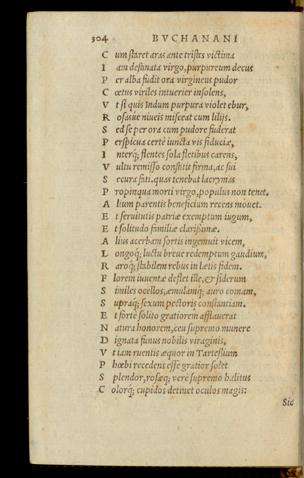 304 BVCHANANI
C um staret aras ante tristis victima
I am destinata virgo, purpureum decus
P er alba fudit ora virgineus pudor
C œtus viriles intuerier insolens,
V t si quis Indum purpura violet ebur,
R osasue niueis misceat cum lilijs.
S ed se per ora cum pudore fuderat
P erspicua certè iuncta vis fiduciæ,
I nterq; flentes sola fletibus carens,
V ultu remisso constitit firma, ac sui
S ecura fati. quas tenebat lacrymas
P ropinqua morti virgo, populus non tenet.
A lium parentis beneficium recens mouet.
E t seruitutis patriæ exemptum iugum,
E t solitudo familiæ clarissimæ.
A lius acerbam sortis ingemuit vicem,
L ongoq; luctu breue redemptum gaudium,
R aroq; stabilem rebus in lætis fidem.
F lorem iuuentæ deflet ille, & siderum
S imiles ocellos, æmulamq; auro comam,
S upraq; sexum pectoris constantiam.
E t fortè solito gratiorem afflauerat
N atura honorem, ceu supremo munere
D ignata funus nobilis viraginis,
V t iam ruentis æquor in Tartessium
P hœbi recedens esse gratior solet
S plendor, rosæq; verè supremo halitus
C olorq; cupidos detinet oculos magis:
Sic